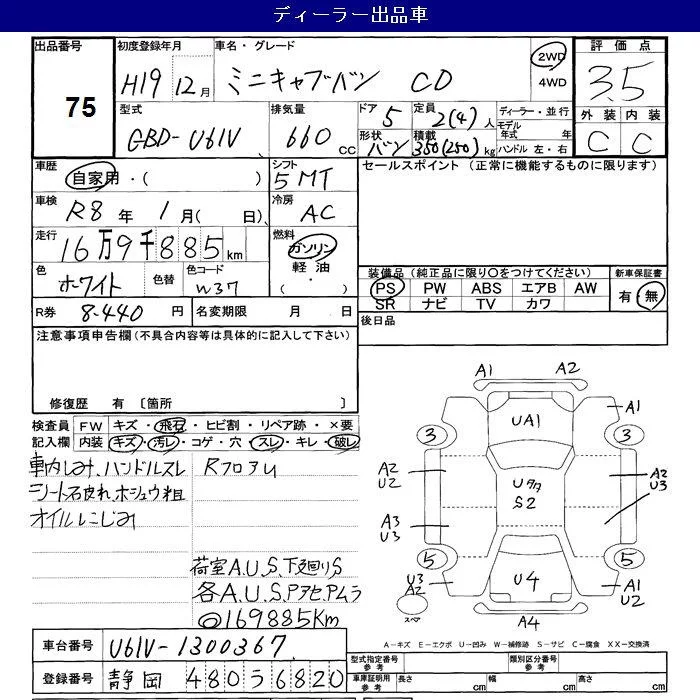 ディーラー出品車
出品番号
75
初度登録年月
H19 12月
車名・グレード
ミニキャブバン CD
2WD
4WD
評価点
3.5
外装 内装
C C
型式
GBD-U61V
排気量
660 CC
ドア 5
定員 2(4)人
形状 バン
積載 350(250) kg
ディーラー・並行
モデル年式 年
ハンドル 左・右
車歴
自家用・( )
シフト
5MT
車検
R8年 1月( 日)
冷房
AC
走行
16万9千885km
燃料
ガソリン
軽油
・( )
色
ホワイト
色替
色コード
W37
R券 8-440円
名変期限 月 日
セールスポイント(正常に機能するものに限ります)
装備品(純正品に限り○をつけてください)
新車保証書
PS PW ABS エアB AW
SR ナビ TV カワ
有・無
後日品
注意事項申告欄(不具合内容等は具体的に記入して下さい)
修復歴 有〔箇所 〕
検査員記入欄
FW キズ・飛石・ヒビ割・リペア跡・×要
内装 キズ・汚レ・コゲ・穴・スレ・キレ・破レ
車内しみ、ハンドルスレ
シート破れ、ホシュウ粗
オイルにじみ
RフロアU
荷室A.U.S.下廻りS
各A.U.S.Pアセ.Pムラ
@169885Km
A1 A2
UA1
A1
3 3
A2
U2
Uタタ
S2
A2
U3
A3
U3
U3
5 5
U3
A2
U4
A1
U2
スペア
A4
A-キズ E-エクボ U-凹み W-補修跡 S-サビ C-腐食 XX-交換済
車台番号 U61V-1300367
登録番号 静岡 480 5 6820
型式指定番号
参考
類別区分番号
参考
車庫証明用
参考
長さ cm 幅 cm 高さ cm